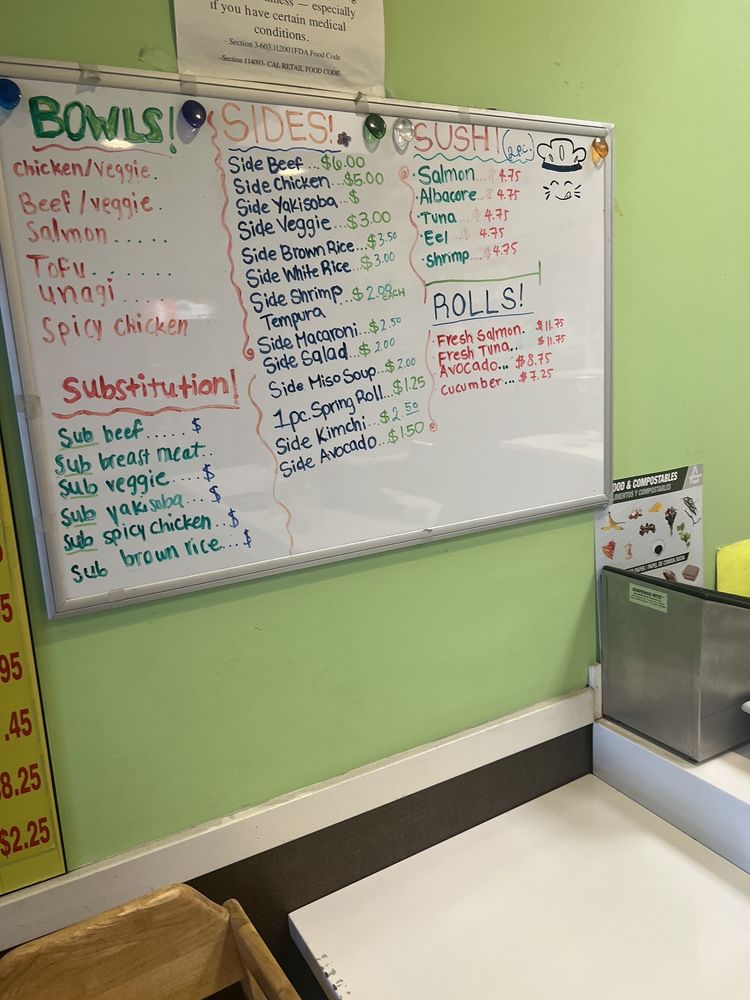 if you have certain medical
conditions.
- Section 3-603.112001FDA Food Code
-Section 114093- CAL RETAIL FOOD CODE
BOWLS!
chicken/veggie.
Beef/veggie.
Salmon......
Tofu.......
unagi....
Spicy chicken
Substitution!
Sub beef..... $
Sub breast meat..
Sub veggie....$
Sub yakisoba...$
Sub spicy chicken..$
Sub brown rice...$
SIDES!
Side Beef...$6.00
Side Chicken...$5.00
Side Yakisoba...$
Side Veggie...$3.00
Side Brown Rice...$3.50
Side White Rice...$3.00
Side Shrimp Tempura...$2.00 EACH
Side Macaroni...$2.50
Side Salad...$2.00
Side Miso Soup...$2.00
1pc.Spring Roll...$1.25
Side Kimchi...$2.50
Side Avocado...$1.50
SUSHI (2pc.)
·Salmon...$4.75
·Albacore...$4.75
·Tuna....$4.75
·Eel....$4.75
·Shrimp...$4.75
ROLLS!
·Fresh Salmon. $11.75
·Fresh Tuna.. $11.75
·Avocado... $8.75
·cucumber... $7.25
OOD & COMPOSTABLES
IMENTOS Y COMPOSTABLES
D PAPER / PAPEL DE COMIDA SUCIA
5
95
.45
8.25
$2.25